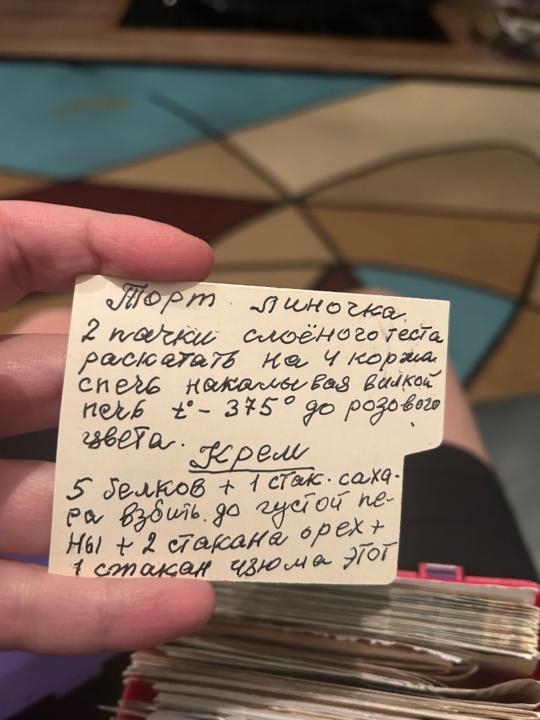 Торт Линочка.
2 пачки слоёного теста
раскатать на 4 коржа
спечь накалывая вилкой
печь t° - 375° до розового
цвета.
Крем
5 белков + 1 стак. саха-
ра взбить до густой пе-
ны + 2 стакана орех +
1 стакан изюма этот